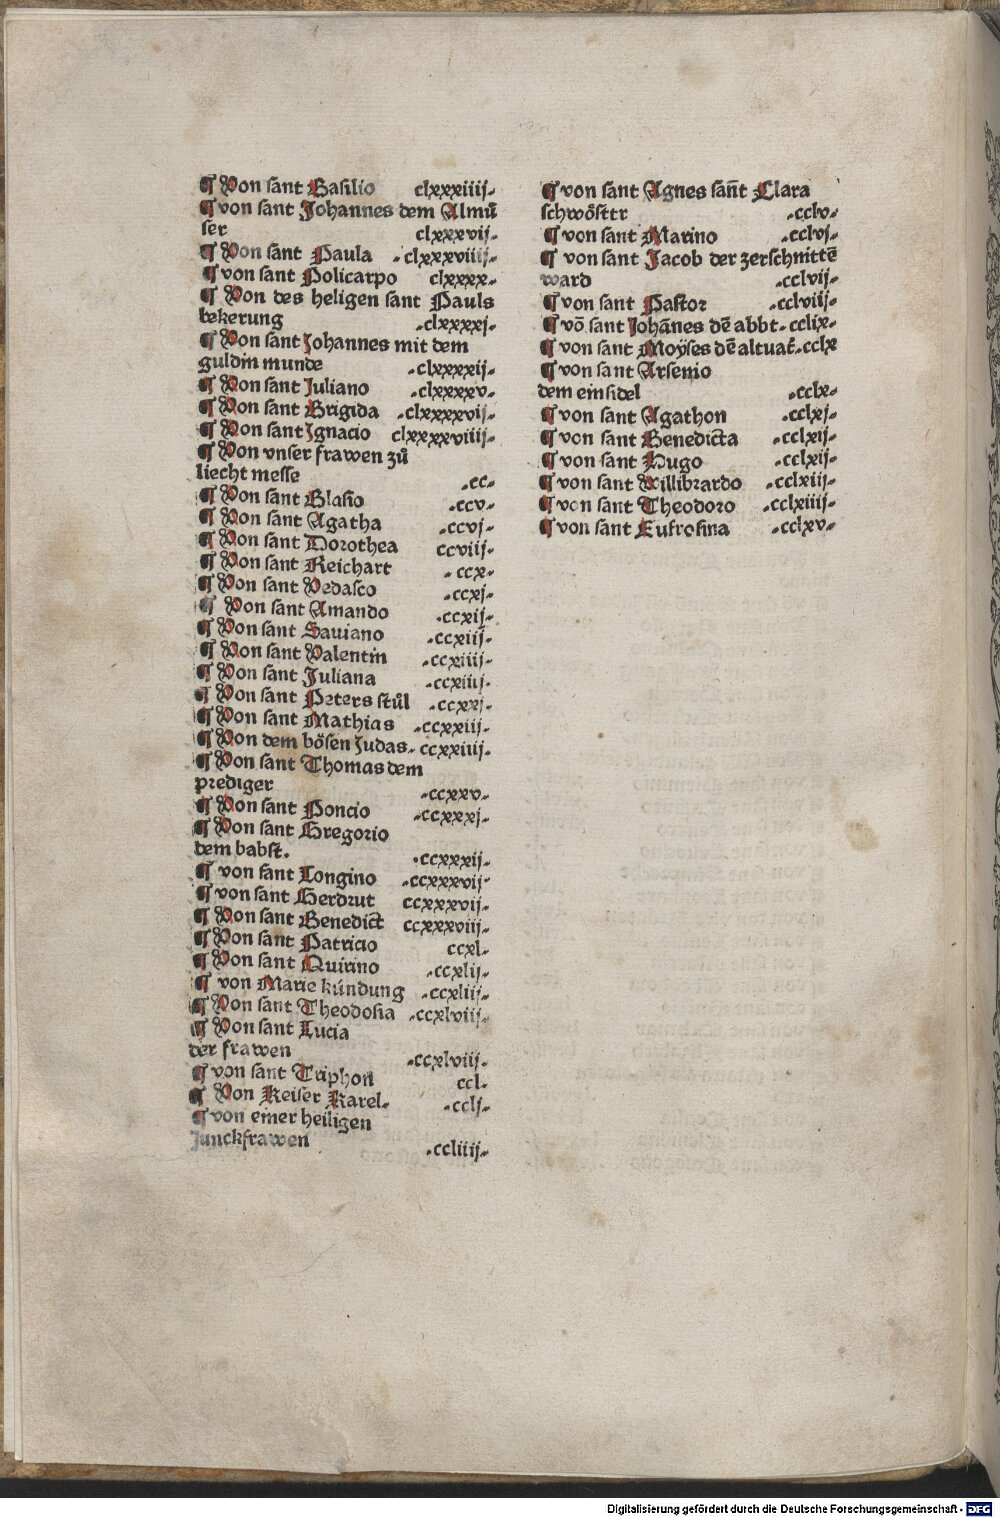 ¶ Von sant Basilio clxxxiiij.
¶ von sant Johannes dem Almů
ser clxxxvij.
¶ Von sant Paula .clxxxviiij.
¶ von sant Policarpo clxxxx.
¶ Von des heligen sant Pauls
bekerung .clxxxxj.
¶ Von sant Johannes mit dem
guldin munde .clxxxxij.
¶ Von sant Juliano .clxxxxv.
¶ Von sant Brigida .clxxxxvij.
¶ Von sant Ignacio clxxxxviiij.
¶ Von vnser frawen zů
liecht messe .cc.
¶ Von sant Blasio .ccv.
¶ Von sant Agatha .ccvj.
¶ Von sant Dorothea ccviij.
¶ Von sant Reichart .ccx.
¶ Von sant Vedasto .ccxj.
¶ Von sant Amando .ccxij.
¶ Von sant Saviano .ccxiij.
¶ Von sant Valentin .ccxiiij.
¶ Von sant Juliana .ccxiiij.
¶ Von sant Peters stůl .ccxxj.
¶ Von sant Mathias .ccxxiij.
¶ Von dem bösen Judas. ccxxiiij.
¶ Von sant Thomas dem
prediger .ccxxv.
¶ Von sant Poncio .ccxxxj.
¶ Von sant Gregorio
dem babst. .ccxxxij.
¶ von sant Longino .ccxxxvij.
¶ von sant Gerdrut ccxxxvij.
¶ Von sant Benedict ccxxxviij.
¶ Von sant Patricio ccxl.
¶ Von sant Quirino .ccxlij.
¶ von Marie kündung .ccxliij.
¶ Von sant Theodosia .ccxlviij.
¶ Von sant Lucia
der frawen .ccxlviij.
¶ von sant Triphon ccl.
¶ Von Keiser Karel. .cclj.
¶ von einer heiligen
Junckfrawen .ccliiij.
¶ von sant Agnes sañt Clara
schwöster .cclv.
¶ von sant Marino .cclvj.
¶ von sant Jacob der zerschnittē
ward .cclvij.
¶ von sant Pastor .cclviij.
¶ vō sant Johānes dē abbt. cclix.
¶ von sant Moÿses dē altuat̄. cclx
¶ von sant Arsenio
dem einsidel .cclx.
¶ von sant Agathon .cclxj.
¶ von sant Benedicta .cclxij.
¶ von sant Hugo .cclxij.
¶ von sant Willibrardo .cclxiij.
¶ von sant Theodoro .cclxiiij.
¶ von sant Eufrosina .cclxv.
Digitalisierung gefördert durch die Deutsche Forschungsgemeinschaft - DFG